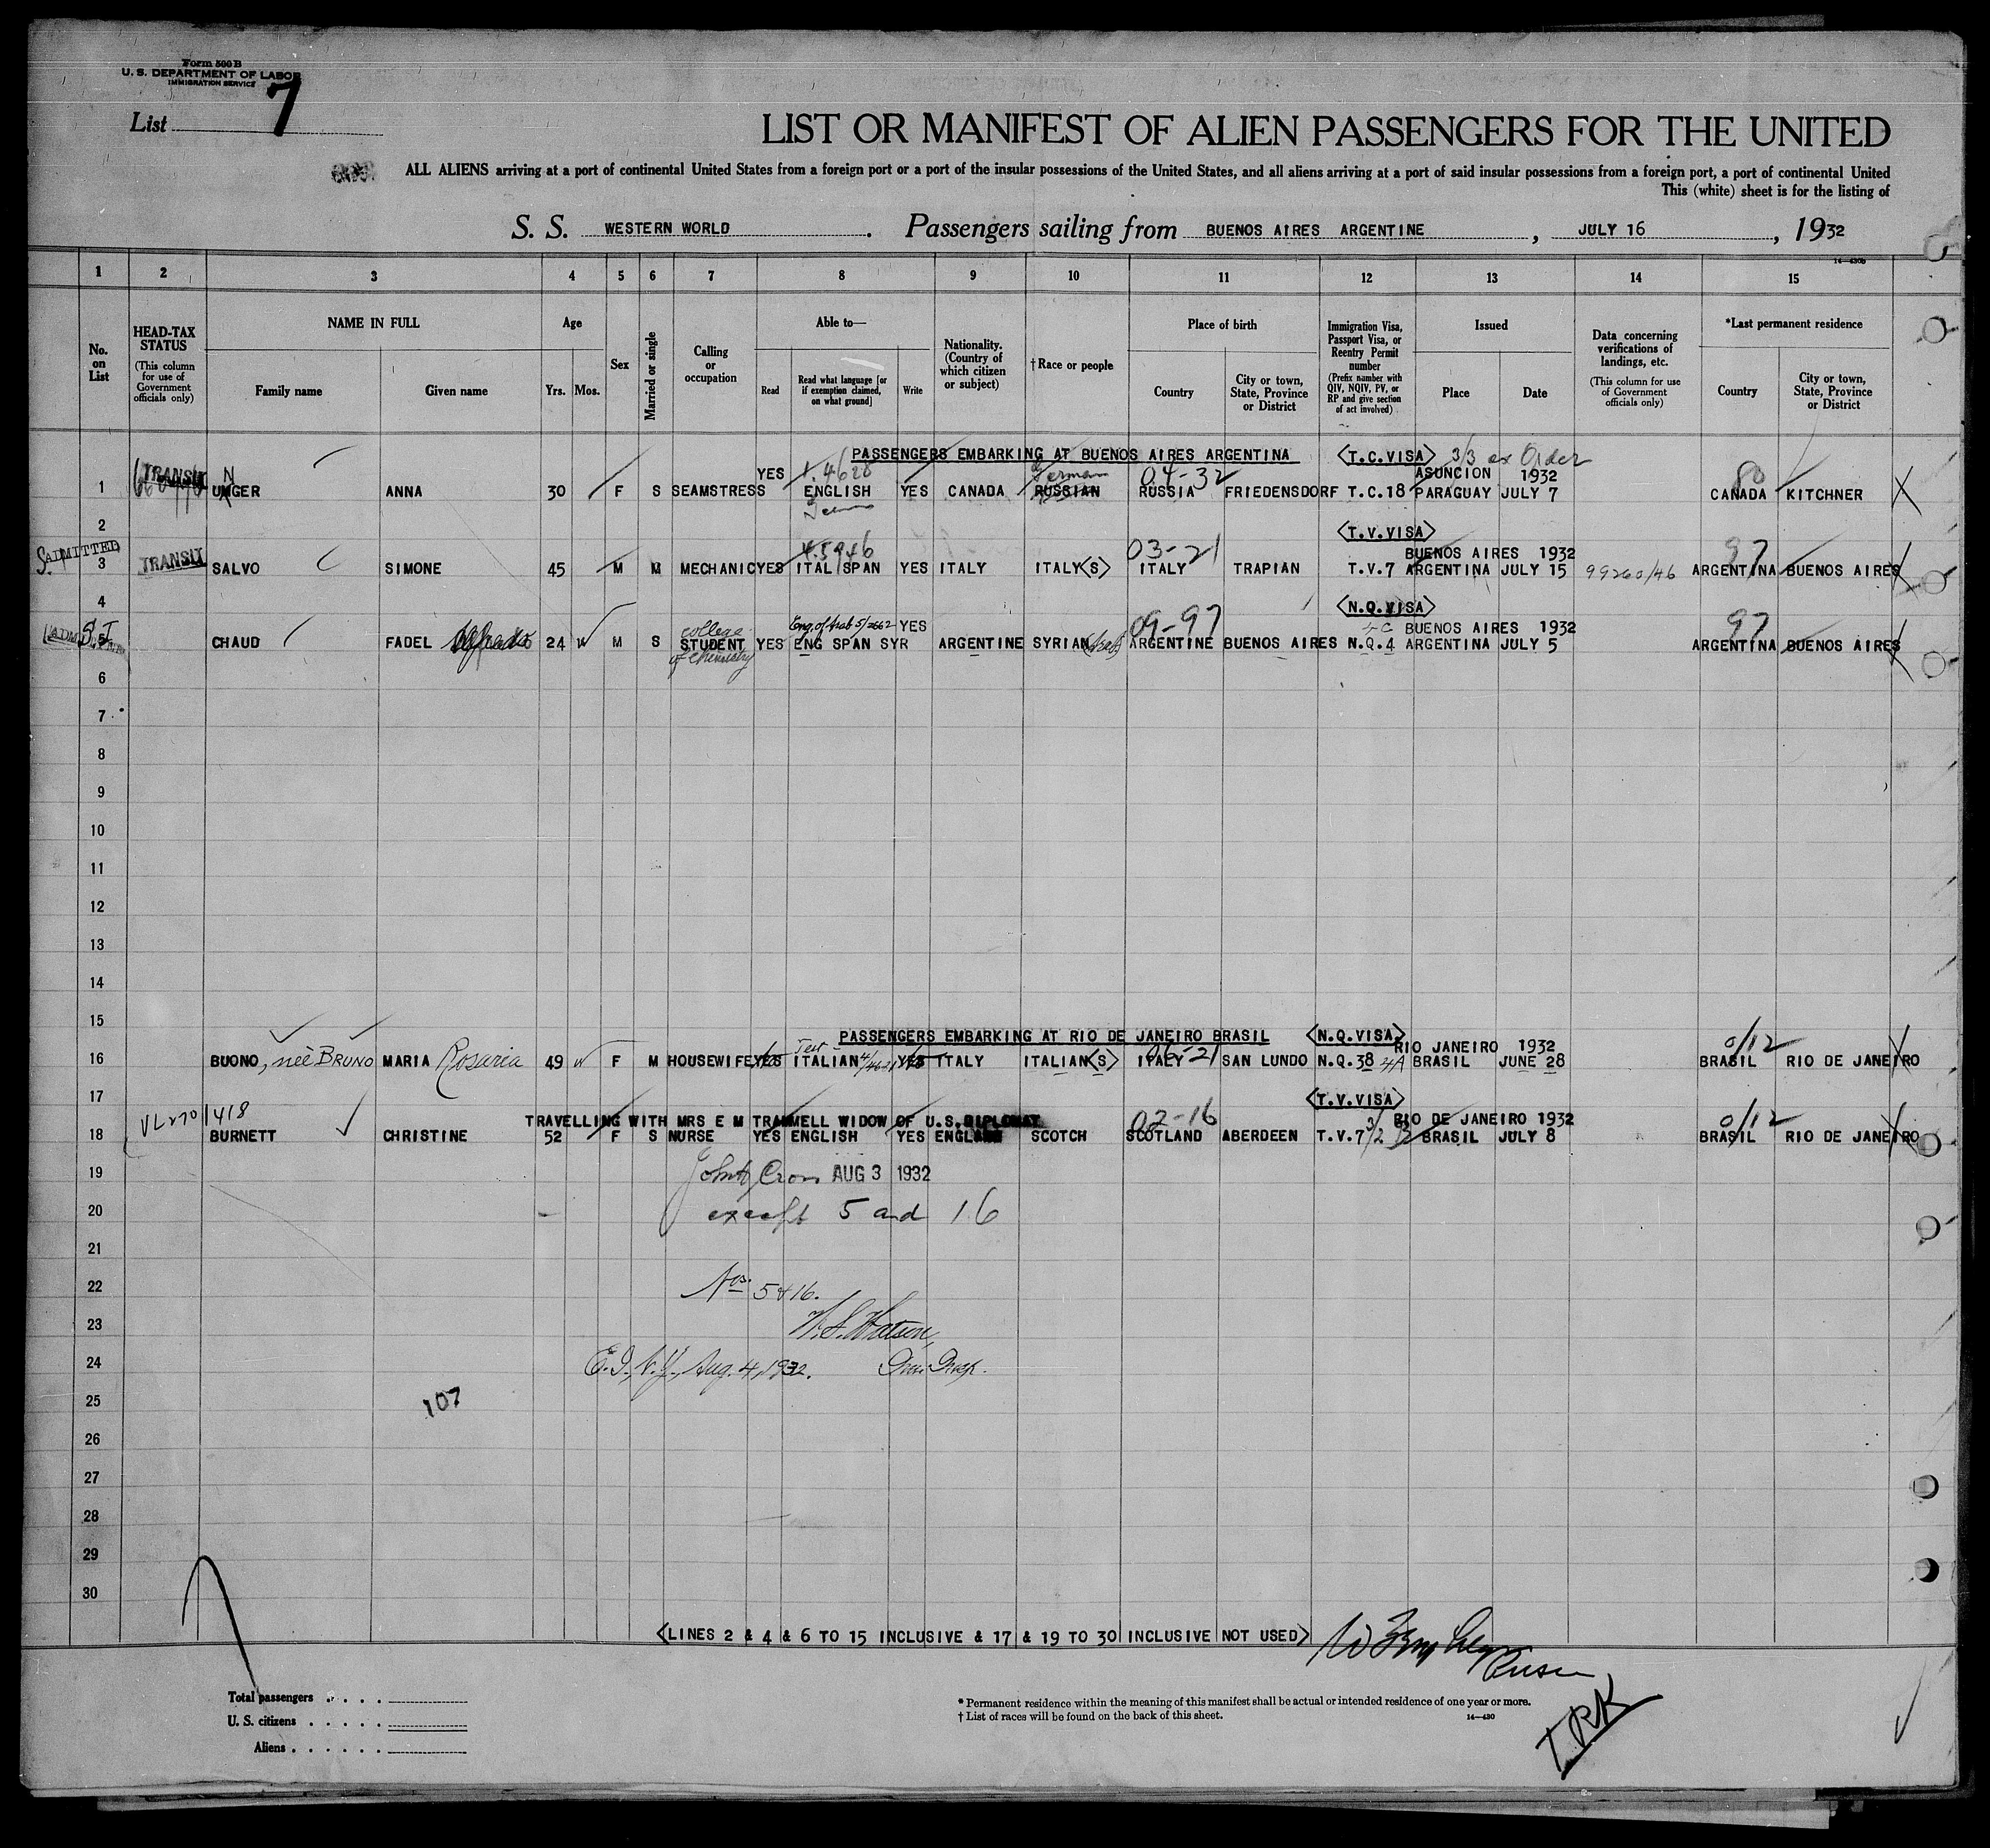 Form 500 B
U. S. DEPARTMENT OF LABOR
IMMIGRATION SERVICE
List 7
LIST OR MANIFEST OF ALIEN PASSENGERS FOR THE UNITED
ALL ALIENS arriving at a port of continental United States from a foreign port or a port of the insular possessions of the United States, and all aliens arriving at a port of said insular possessions from a foreign port, a port of continental United
This (white) sheet is for the listing of
S. S. WESTERN WORLD . Passengers sailing from BUENOS AIRES ARGENTINE , JULY 16 , 1932
14—430b
1 2 3 4 5 6 7 8 9 10 11 12 13 14 15
No. on List
HEAD-TAX STATUS (This column for use of Government officials only)
NAME IN FULL
Family name
Given name
Age
Yrs. Mos.
Sex
Married or single
Calling or occupation
Able to—
Read
Read what language [or if exemption claimed, on what ground]
Write
Nationality. (Country of which citizen or subject)
†Race or people
Place of birth
Country
City or town, State, Province or District
Immigration Visa, Passport Visa, or Reentry Permit number (Prefix number with QIV, NQIV, PV, or RP and give section of act involved)
Issued
Place
Date
Data concerning verifications of landings, etc. (This column for use of Government officials only)
*Last permanent residence
Country
City or town, State, Province or District
PASSENGERS EMBARKING AT BUENOS AIRES ARGENTINA <T.C.VISA> 3/3 ex Order
TRANSIT N YES 1.4628 German 04-32 ASUNCION 1932 80
1 UNGER ANNA 30 F S SEAMSTRESS ENGLISH YES CANADA RUSSIAN RUSSIA FRIEDENSDORF T.C.18 PARAGUAY JULY 7 CANADA KITCHNER
2 <T.V.VISA>
ADMITTED TRANSIT 4.5946 03-21 BUENOS AIRES 1932 97
3 SALVO SIMONE 45 M M MECHANIC YES ITAL SPAN YES ITALY ITALY<S> ITALY TRAPIAN T.V.7 ARGENTINA JULY 15 99260/46 ARGENTINA BUENOS AIRES
4 <N.Q.VISA>
S.I. college Eng. of Arab 5/2662 YES 09-97 4C BUENOS AIRES 1932 97
5 CHAUD FADEL 24 M S STUDENT YES ENG SPAN SYR ARGENTINE SYRIAN ARGENTINE BUENOS AIRES N.Q.4 ARGENTINA JULY 5 ARGENTINA BUENOS AIRES
of chemistry
6
7
8
9
10
11
12
13
14
15 PASSENGERS EMBARKING AT RIO DE JANEIRO BRASIL <N.Q.VISA>
Test 06-21 RIO JANEIRO 1932 0/12
16 BUONO, neé BRUNO MARIA Rosaria 49 F M HOUSEWIFE YES ITALIAN YES ITALY ITALIAN<S> ITALY SAN LUNDO N.Q.38 4A BRASIL JUNE 28 BRASIL RIO DE JANEIRO
17 <T.V.VISA>
TRAVELLING WITH MRS E M TRAMMELL WIDOW OF U.S.DIPLOMAT 02-16 RIO DE JANEIRO 1932 0/12
18 BURNETT CHRISTINE 52 F S NURSE YES ENGLISH YES ENGLAND SCOTCH SCOTLAND ABERDEEN T.V.7 BRASIL JULY 8 BRASIL RIO DE JANEIRO
19 AUG 3 1932
20 except 5 and 16
21
22 Nos. 5 & 16.
23 Watson,
24 E.I., N.Y., Aug. 4, 1932. Imm. Insp.
25 107
26
27
28
29
30
<LINES 2 & 4 & 6 TO 15 INCLUSIVE & 17 & 19 TO 30 INCLUSIVE NOT USED>
Purser
Total passengers . . . .
U. S. citizens . . . . .
Aliens . . . . . .
* Permanent residence within the meaning of this manifest shall be actual or intended residence of one year or more.
† List of races will be found on the back of this sheet.
14—430